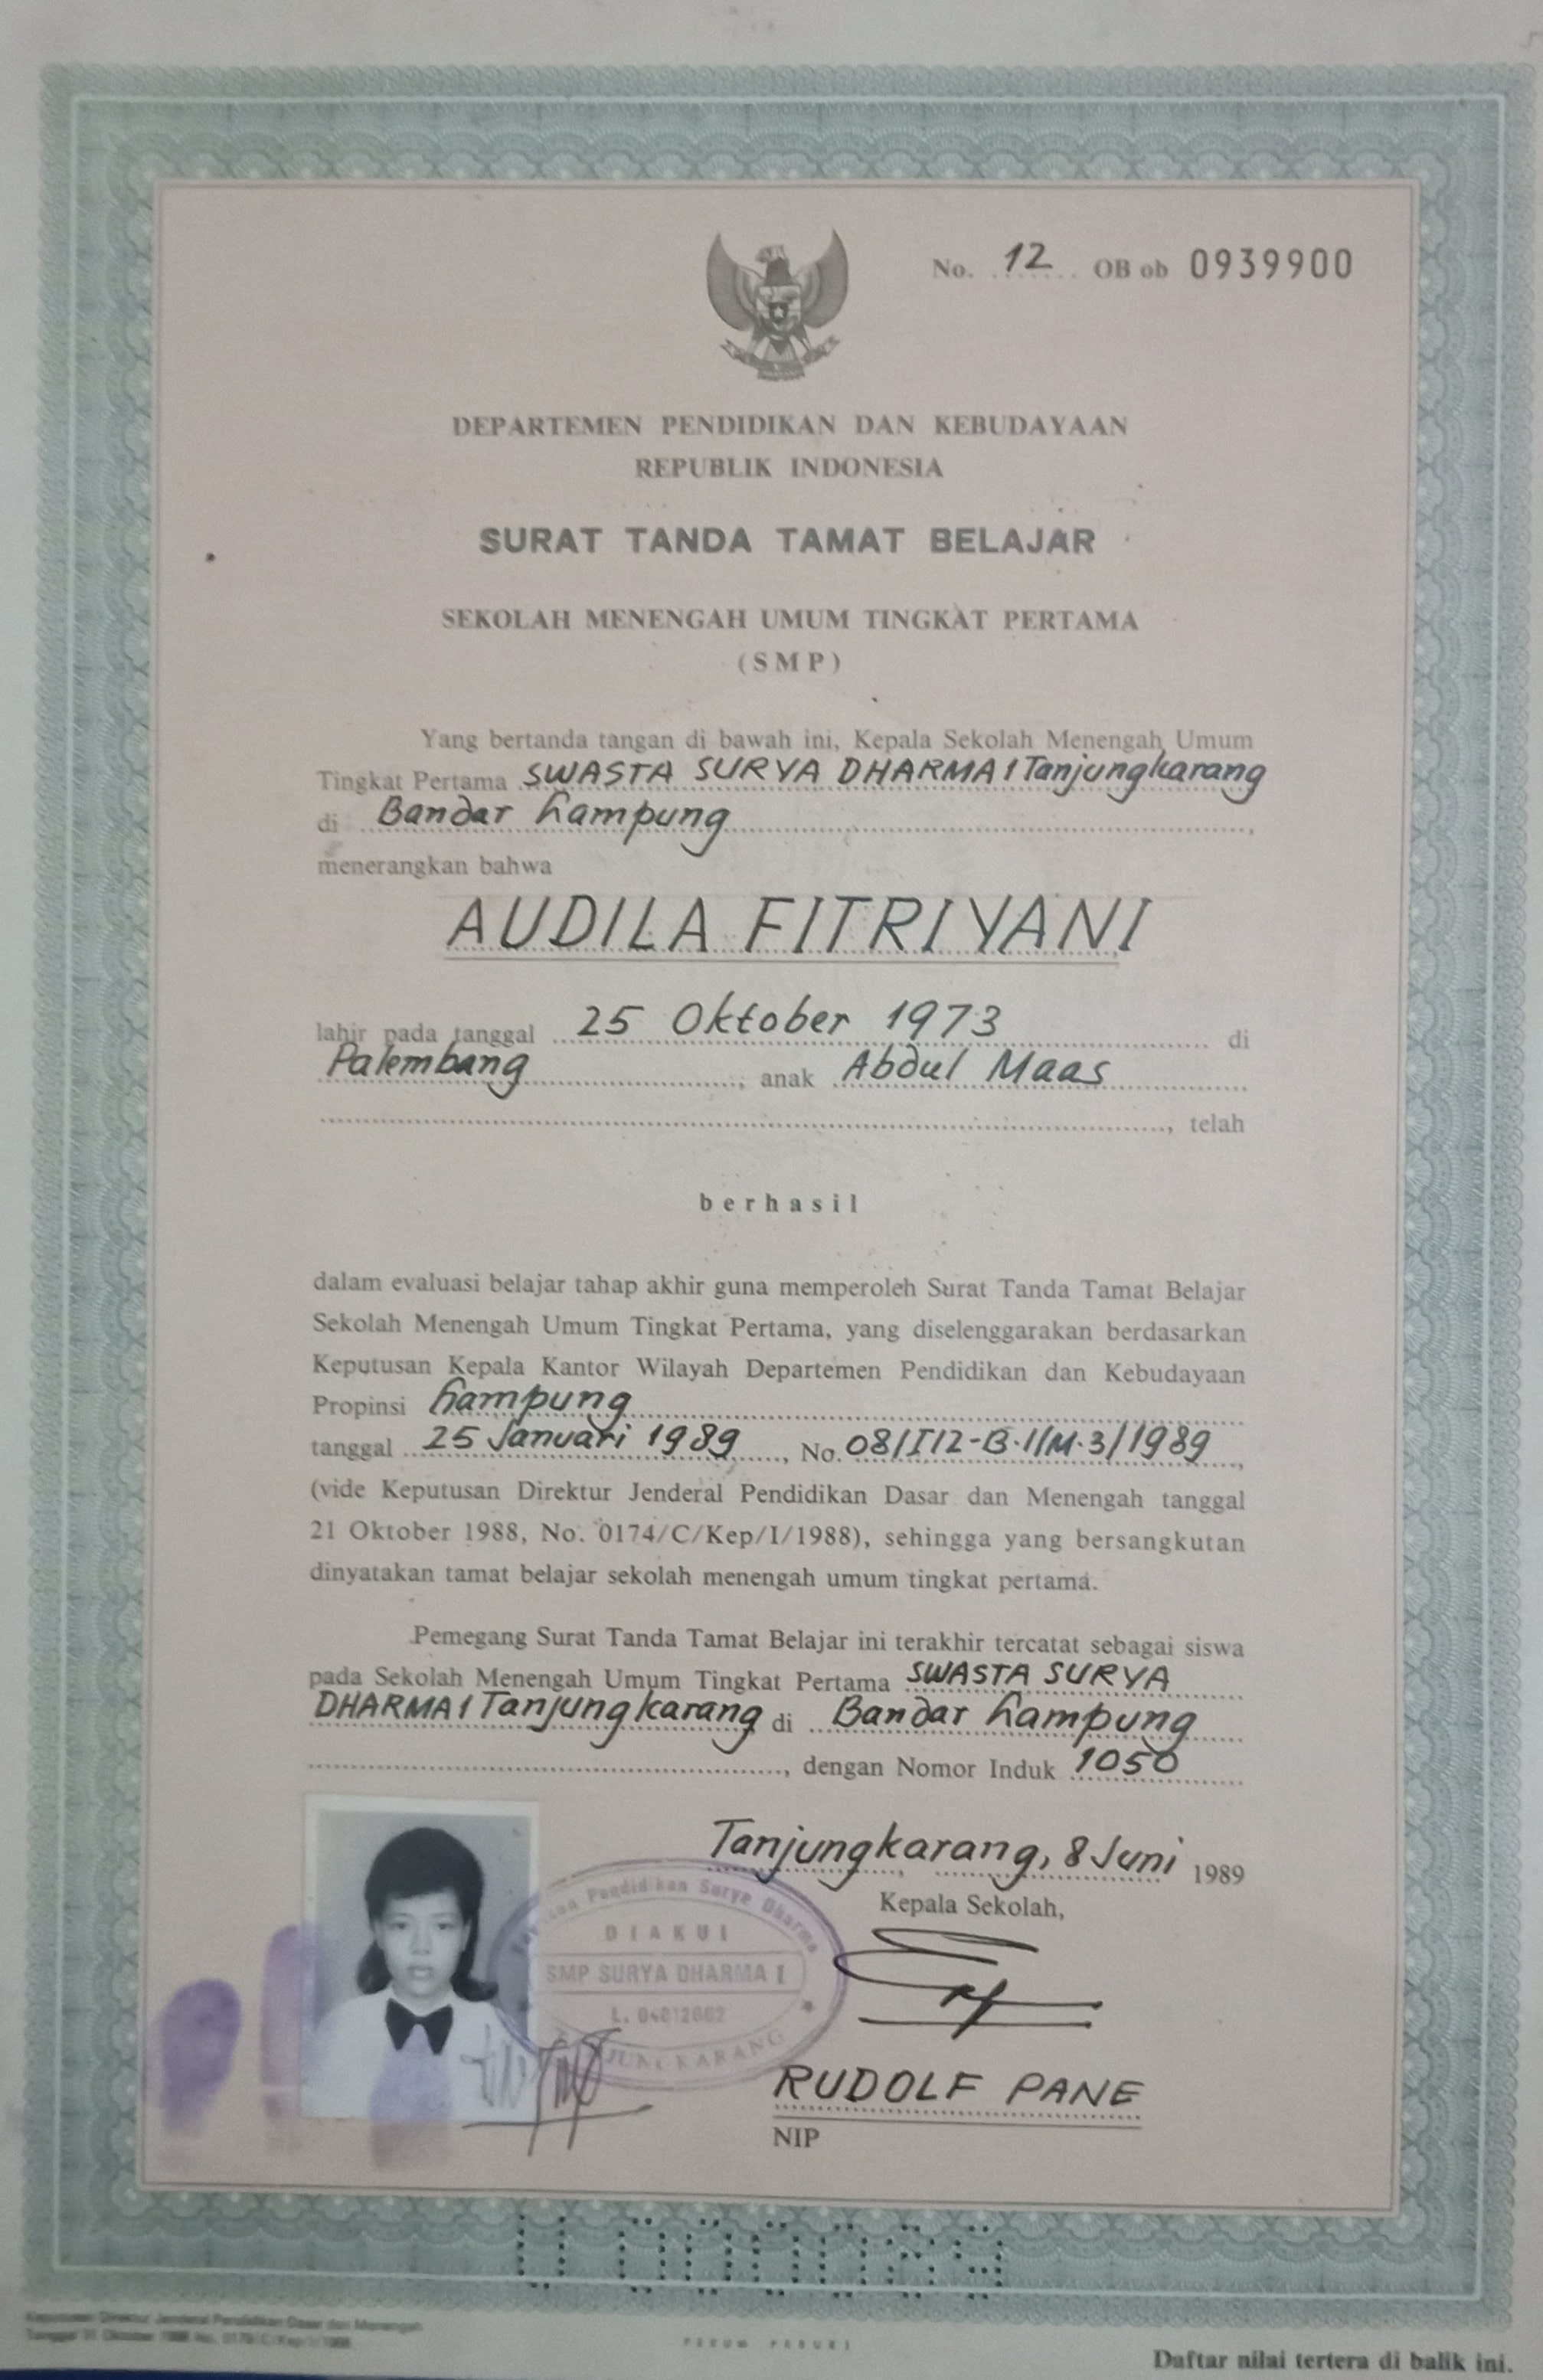 No. 12 OB ob 0939900
DEPARTEMEN PENDIDIKAN DAN KEBUDAYAAN
REPUBLIK INDONESIA
SURAT TANDA TAMAT BELAJAR
SEKOLAH MENENGAH UMUM TINGKAT PERTAMA
(SMP)
Yang bertanda tangan di bawah ini, Kepala Sekolah Menengah Umum
Tingkat Pertama SWASTA SURYA DHARMA 1 Tanjungkarang
di Bandar Lampung,
menerangkan bahwa
AUDILA FITRIYANI
lahir pada tanggal 25 Oktober 1973 di
Palembang, anak Abdul Maas
, telah
berhasil
dalam evaluasi belajar tahap akhir guna memperoleh Surat Tanda Tamat Belajar
Sekolah Menengah Umum Tingkat Pertama, yang diselenggarakan berdasarkan
Keputusan Kepala Kantor Wilayah Departemen Pendidikan dan Kebudayaan
Propinsi Lampung
tanggal 25 Januari 1989, No. 08/I12-B.1/M.3/1989,
(vide Keputusan Direktur Jenderal Pendidikan Dasar dan Menengah tanggal
21 Oktober 1988, No. 0174/C/Kep/I/1988), sehingga yang bersangkutan
dinyatakan tamat belajar sekolah menengah umum tingkat pertama.
Pemegang Surat Tanda Tamat Belajar ini terakhir tercatat sebagai siswa
pada Sekolah Menengah Umum Tingkat Pertama SWASTA SURYA
DHARMA 1 Tanjungkarang di Bandar Lampung
, dengan Nomor Induk 1050
Tanjungkarang, 8 Juni 1989
Kepala Sekolah,
Pendidikan Surya Dharma
DIAKUI
SMP SURYA DHARMA I
RUDOLF PANE
NIP
Keputusan Direktur Jenderal Pendidikan Dasar dan Menengah
PERUM PERURI
Daftar nilai tertera di balik ini.